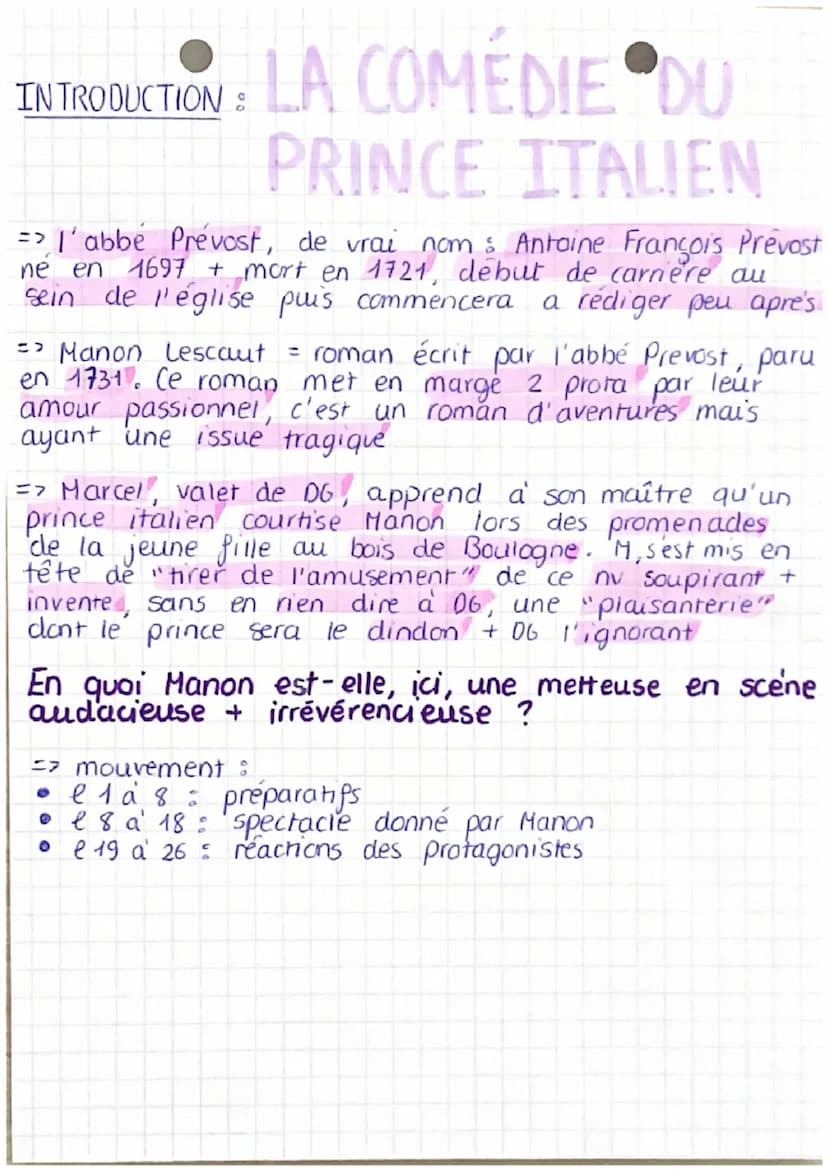 INTRODUCTION : LA COMÉDIE DU
PRINCE ITALIEN
=> l'abbé Prévost, de vrai nom : Antoine François Prévost
né en 1697 + mort en 1721, début de carrière au
sein de l'église puis commencera a rédiger peu après.
=> Manon Lescaut = roman écrit par l'abbé Prevost, paru
en 1731. Ce roman met en marge 2 prota par leur
amour passionnel, c'est un roman d'aventures mais
ayant une issue tragique
=> Marcel, valet de DG, apprend à son maître qu'un
prince italien courtise Manon lors des promenades
de la jeune fille au bois de Boulogne. M, s'est mis en
tête de "tirer de l'amusement" de ce nv soupirant +
invente, sans en rien dire à DG, une "plaisanterie"
dont le prince sera le dindon + DG l'ignorant
En quoi Manon est-elle, ici, une metteuse en scène
audacieuse + irrévérencieuse ?
=> mouvement :
• l 1 à 8 : préparatifs
• l 8 à 18 : spectacle donné par Manon
• l 19 à 26 : réactions des protagonistes